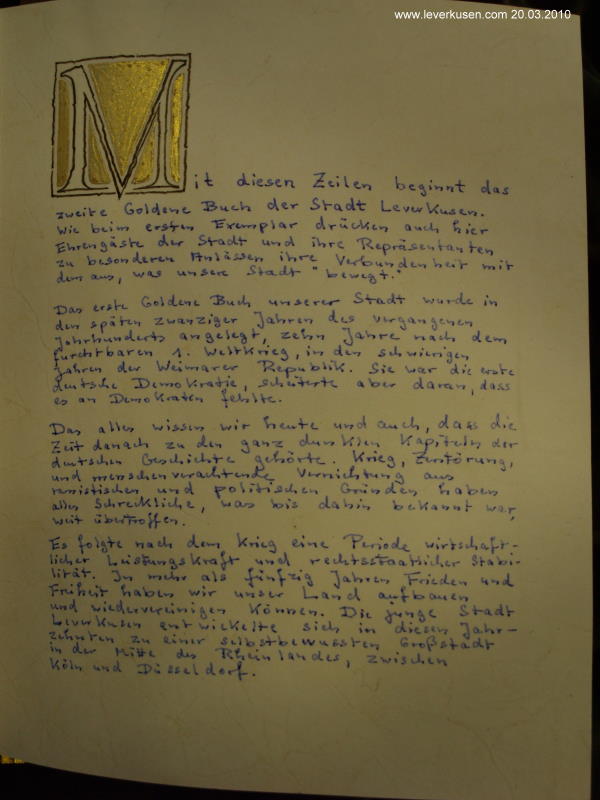 www.leverkusen.com 20.03.2010
Mit diesen Zeilen beginnt das
zweite Goldene Buch der Stadt Leverkusen.
Wie beim ersten Exemplar drücken auch hier
Ehrengäste der Stadt und ihre Repräsentanten
zu besonderen Anlässen ihre Verbundenheit mit
dem aus, was unsere Stadt "bewegt."
Das erste Goldene Buch unserer Stadt wurde in
den späten zwanziger Jahren des vergangenen
Jahrhunderts angelegt, zehn Jahre nach dem
furchtbaren 1. Weltkrieg, in den schwierigen
Jahren der Weimarer Republik. Sie war die erste
deutsche Demokratie, scheiterte aber daran, dass
es an Demokraten fehlte.
Das alles wissen wir heute und auch, dass die
Zeit danach zu den ganz dunklen Kapiteln der
deutschen Geschichte gehörte. Krieg, Zerstörung,
und menschenverachtende Vernichtung aus
rassistischen und politischen Gründen haben
alles Schreckliche, was bis dahin bekannt war,
weit übertroffen.
Es folgte nach dem Krieg eine Periode wirtschaft-
licher Leistungskraft und rechtsstaatlicher Stabi-
lität. In mehr als fünfzig Jahren Frieden und
Freiheit haben wir unser Land aufbauen
und wiedervereinigen können. Die junge Stadt
Leverkusen entwickelte sich in diesen Jahr-
zehnten zu einer selbstbewussten Großstadt
in der Mitte des Rheinlandes, zwischen
Köln und Düsseldorf.